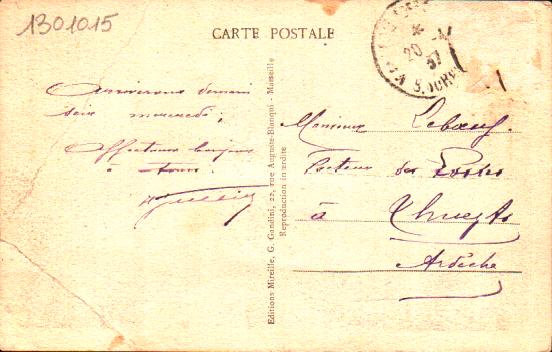 1301015
CARTE POSTALE
20 -4
37
Arriverons demain
soir mercredi,
Affectueux bonjour
à tous
Editions Mireille, G. Gandini, 22, rue Auguste-Blanqui - Marseille
Reproduction interdite
Monsieur Leboeuf
Facteur des Postes
à Thueyts
Ardèche